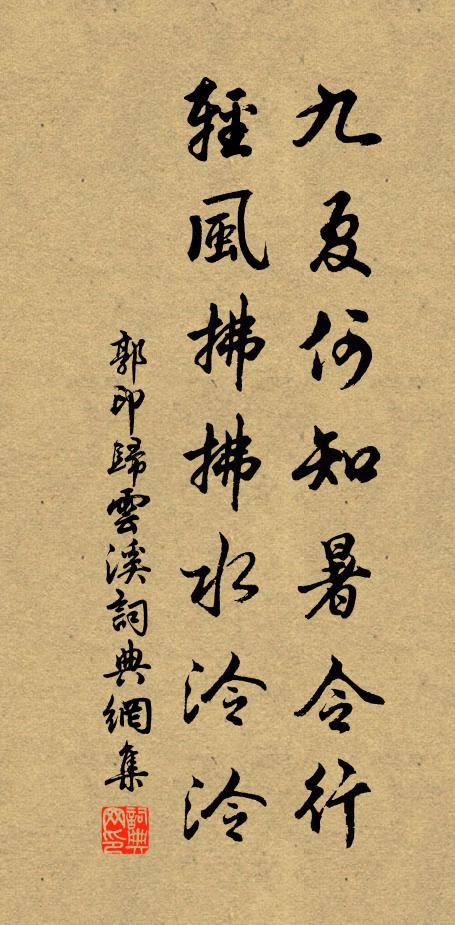 九夏何知暑令行
輕風拂拂水泠泠
郭印歸雲溪詞典網集
詞典網印